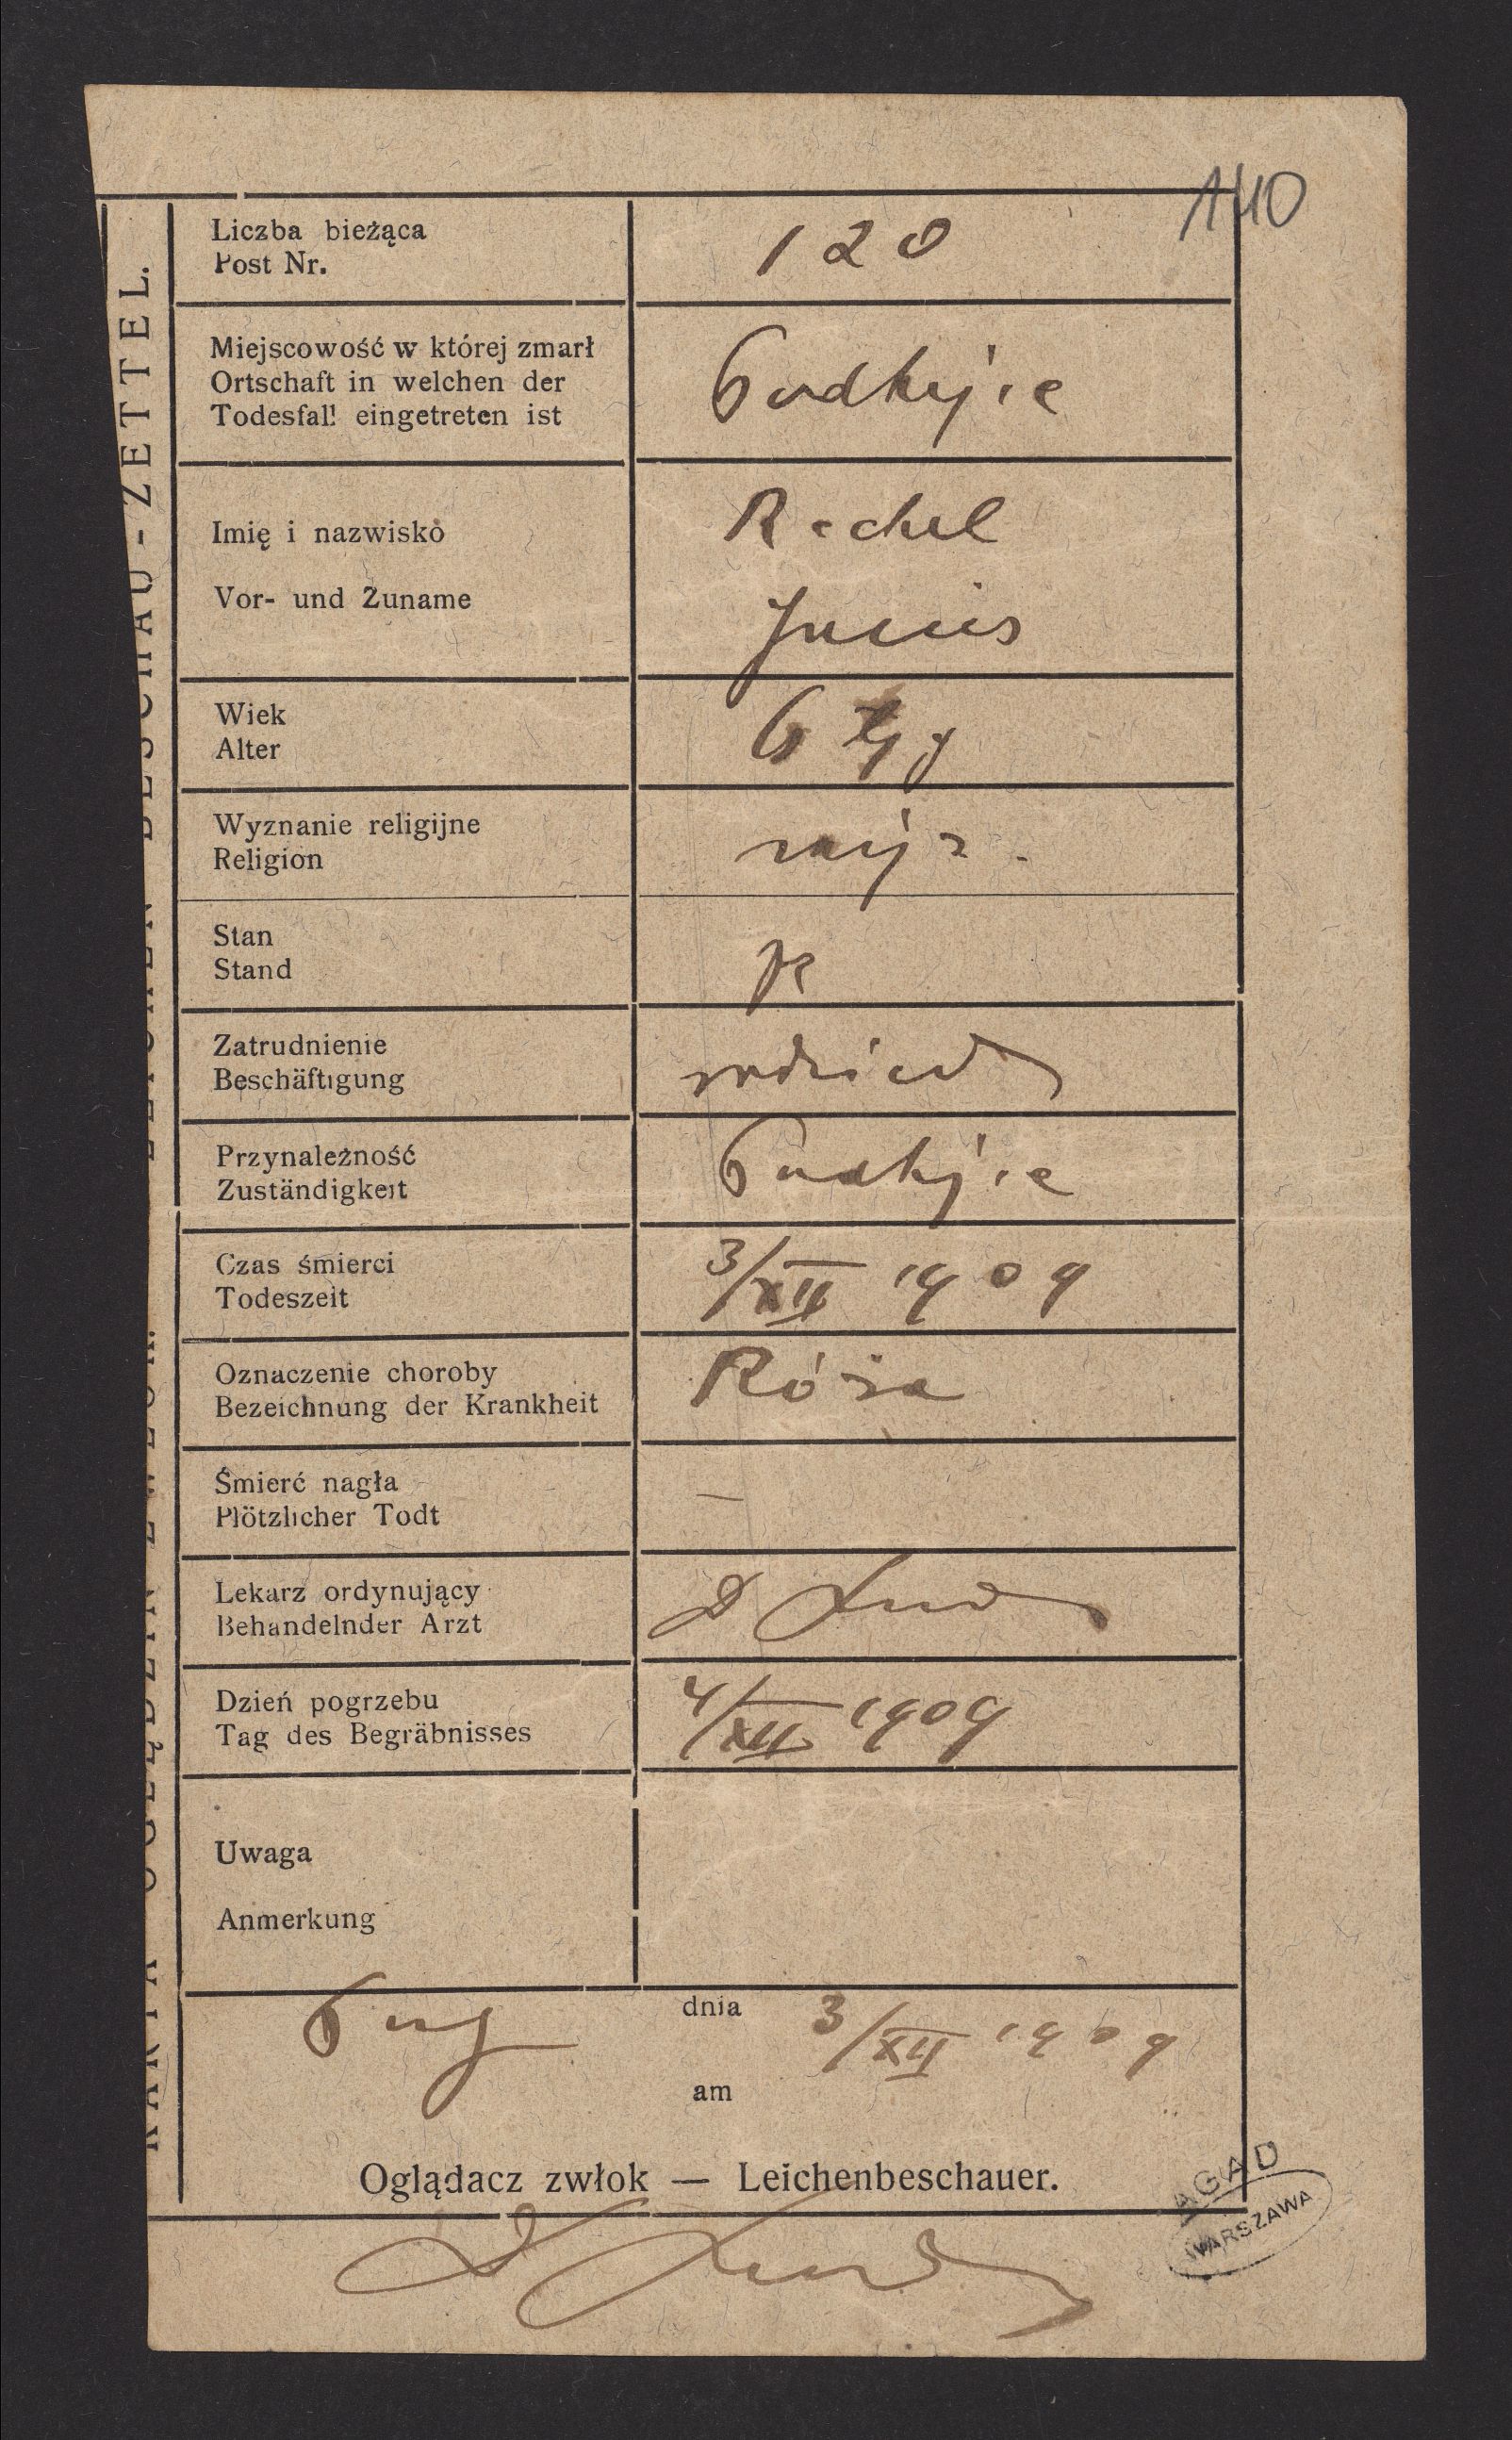 140
KARTA OGLĘDZIN ZWŁOK. LEICHEN-BESCHAU-ZETTEL.
Liczba bieżąca
Post Nr.
120
Miejscowość w której zmarł
Ortschaft in welchen der
Todesfall eingetreten ist
Imię i nazwisko
Vor- und Zuname
Rachel
Wiek
Alter
6
Wyznanie religijne
Religion
mojż.
Stan
Stand
Zatrudnienie
Beschäftigung
Przynależność
Zuständigkeit
Czas śmierci
Todeszeit
3/XII 1909
Oznaczenie choroby
Bezeichnung der Krankheit
Róża
Śmierć nagła
Plötzlicher Todt
—
Lekarz ordynujący
Behandelnder Arzt
D
Dzień pogrzebu
Tag des Begräbnisses
4/XII 1909
Uwaga
Anmerkung
dnia 3/XII 1909
am
Oglądacz zwłok — Leichenbeschauer.
AGAD
WARSZAWA